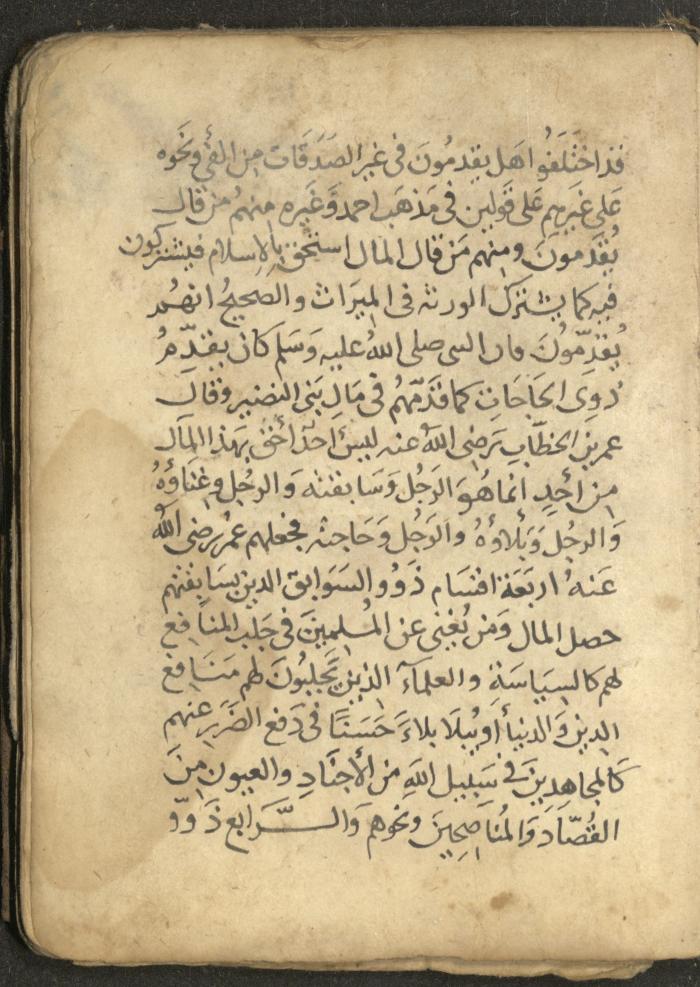 فذاختلفوا هل يقدمون فى غير الصدقات من الفئ ونحوه
على غيرهم على قولين فى مذهب احمد وغيره منهم من قال
يقدمون ومنهم من قال المال استحق بالاسلام فيشتركون
فيه كما يشترك الورثة فى الميراث والصحيح انهم
يقدمون فان النبى صلى الله عليه وسلم كان يقدم
ذوى الحاجات كما قدمهم فى مال بنى النضير وقال
عمر بن الخطاب رضى الله عنه ليس احد أحق بهذا المال
من أحد انما هو الرجل وسابقته والرجل وغناؤه
والرجل وبلاؤه والرجل وحاجته فجعلهم عمر رضى الله
عنه اربعة اقسام ذوو السوابق الدين بسابقتهم
حصل المال ومن يغنى عن المسلمين فى جلب المنافع
لهم كالسياسة والعلمآء الذين يجلبون لهم منافع
الدين والدنيا أو يبلا بلاء حسنا فى دفع الضرر عنهم
كالمجاهدين فى سبيل الله من الأجناد والعيون من
القصاد والمناصحين ونحوهم والرابع ذوو